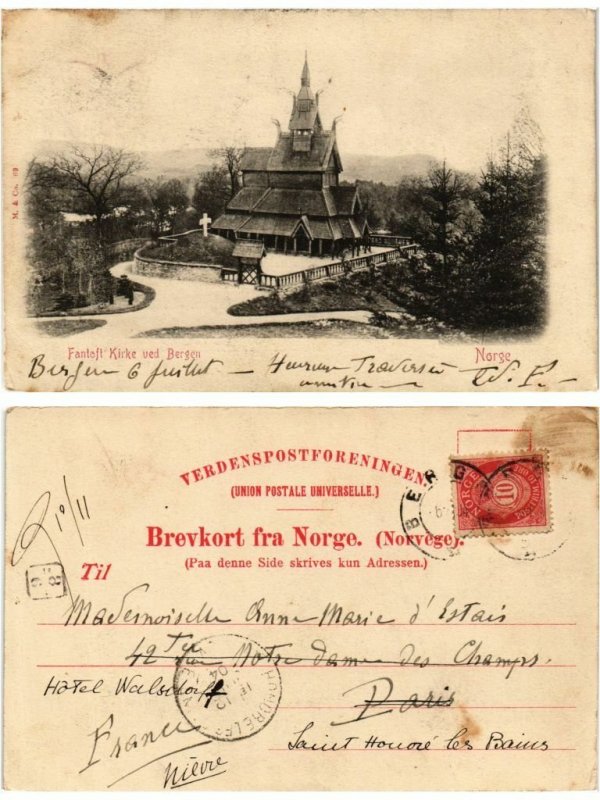 M. & Co. 
Fantoft Kirke ved Bergen
Norge
Bergen 6 Juillet — Heureuse Traversée
VERDENSPOSTFORENINGEN
(UNION POSTALE UNIVERSELLE.)
Brevkort fra Norge. (Norvège).
(Paa denne Side skrives kun Adressen.)
BERG
NORGE
10
10/11
Til
Mademoiselle Anne Marie d'Estais
42 Ter Notre dame des Champs.
Hôtel Walsdorff
Paris
France
Saint Honoré les Bains
Nièvre